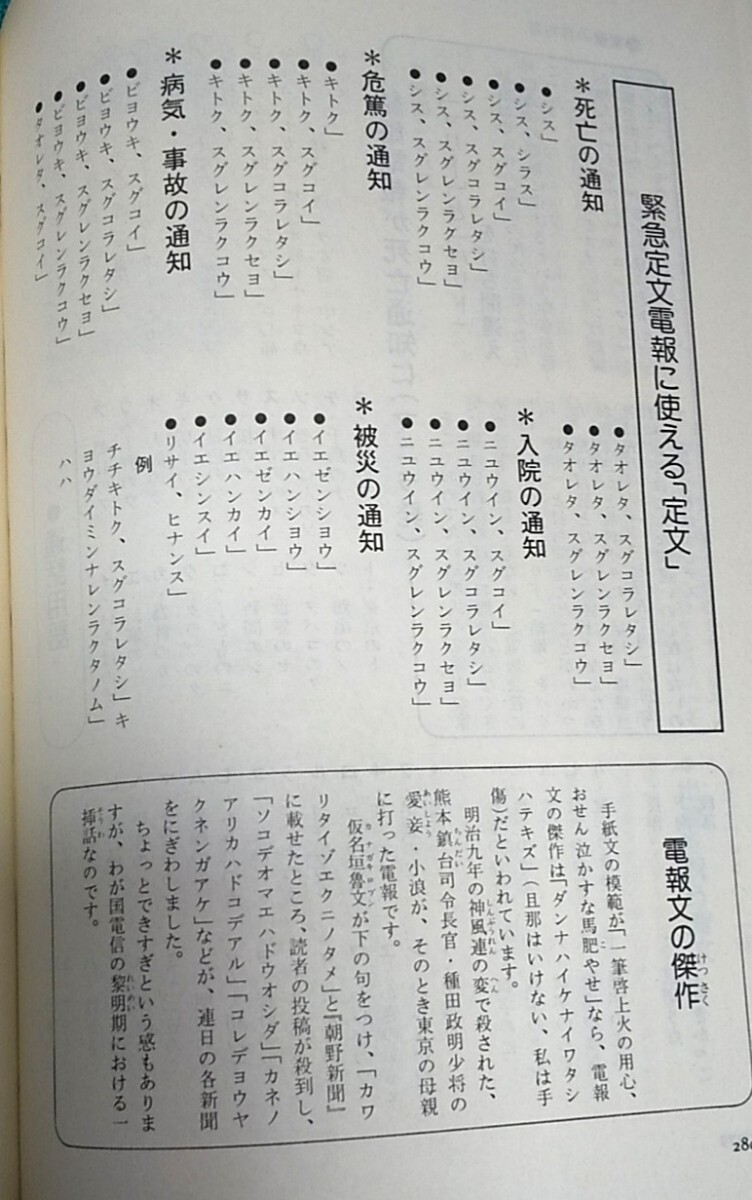 緊急定文電報に使える「定文」
＊死亡の通知
●シス」
●シス、シラス」
●シス、スグコイ」
●シス、スグコラレタシ」
●シス、スグレンラクセヨ」
●シス、スグレンラクコウ」
＊危篤の通知
●キトク」
●キトク、スグコイ」
●キトク、スグコラレタシ」
●キトク、スグレンラクセヨ」
●キトク、スグレンラクコウ」
＊病気・事故の通知
●ビヨウキ、スグコイ」
●ビヨウキ、スグコラレタシ」
●ビヨウキ、スグレンラクセヨ」
●ビヨウキ、スグレンラクコウ」
●タオレタ、スグコイ」
●タオレタ、スグコラレタシ」
●タオレタ、スグレンラクセヨ」
●タオレタ、スグレンラクコウ」
＊入院の通知
●ニユウイン、スグコイ」
●ニユウイン、スグコラレタシ」
●ニユウイン、スグレンラクセヨ」
●ニユウイン、スグレンラクコウ」
＊被災の通知
●イエゼンシヨウ」
●イエハンシヨウ」
●イエゼンカイ」
●イエハンカイ」
●イエシンスイ」
●リサイ、ヒナンス」
例
チチキトク、スグコラレタシ」キ
ヨウダイミンナレンラクタノム」
ハハ
電報文の傑作
手紙文の模範が、「一筆啓上火の用心、
おせん泣かすな馬肥やせ」なら、電報
文の傑作は「ダンナハイケナイワタシ
ハテキズ」（旦那はいけない、私は手
傷）だといわれています。
明治九年の神風連の変で殺された、
熊本鎮台司令長官・種田政明少将の
愛妾・小浪が、そのとき東京の母親
に打った電報です。
仮名垣魯文が下の句をつけ、「カワ
リタイゾエクニノタメ」と『朝野新聞』
に載せたところ、読者の投稿が殺到し、
「ソコデオマエハドウオシダ」「カネノ
アリカハドコデアル」「コレデヨウヤ
クネンガアケ」などが、連日の各新聞
をにぎわしました。
ちょっとできすぎという感もありま
すが、わが国電信の黎明期における一
挿話なのです。